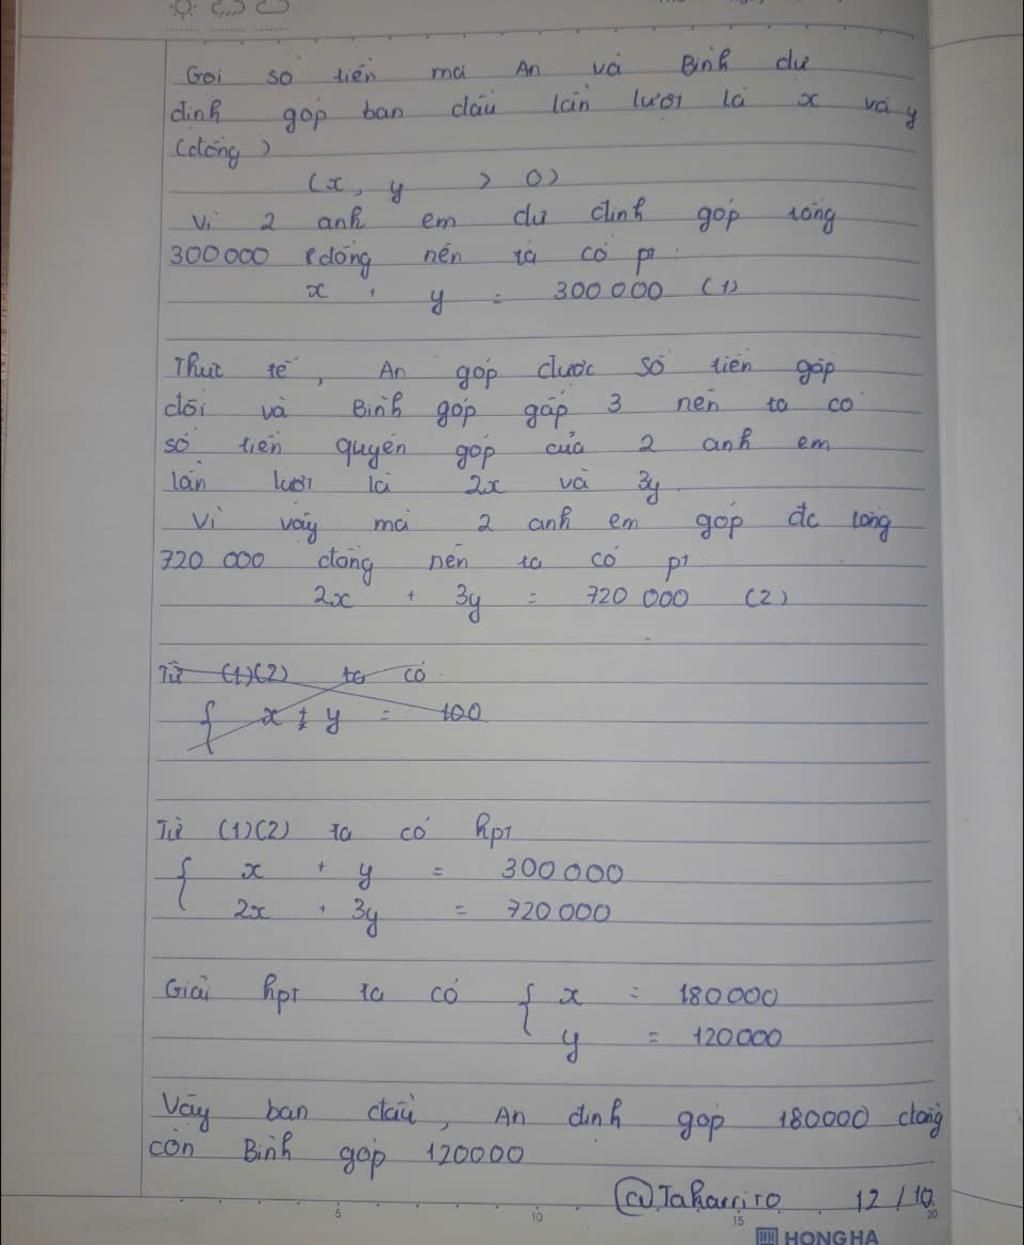 Gọi số tiền mà An và Bình dự
định góp ban đầu lần lượt là x và y
(đồng)
(x, y > 0)
Vì 2 anh em dự định góp tổng
300 000 đồng nên ta có pt:
x + y = 300 000 (1)
Thực tế, An góp được số tiền gấp
đôi và Bình góp gấp 3 nên ta có
số tiền quyên góp của 2 anh em
lần lượt là 2x và 3y.
Vì vậy mà 2 anh em góp đc tổng
720 000 đồng nên ta có pt
2x + 3y = 720 000 (2)
Từ (1)(2) ta có
{ x + y = 100
Từ (1)(2) ta có hpt
{ x + y = 300 000
2x + 3y = 720 000
Giải hpt ta có { x = 180000
y = 120000
Vậy ban đầu, An định góp 180000 đồng
còn Bình góp 120000
12/10
5 10 15 20
HONG HA